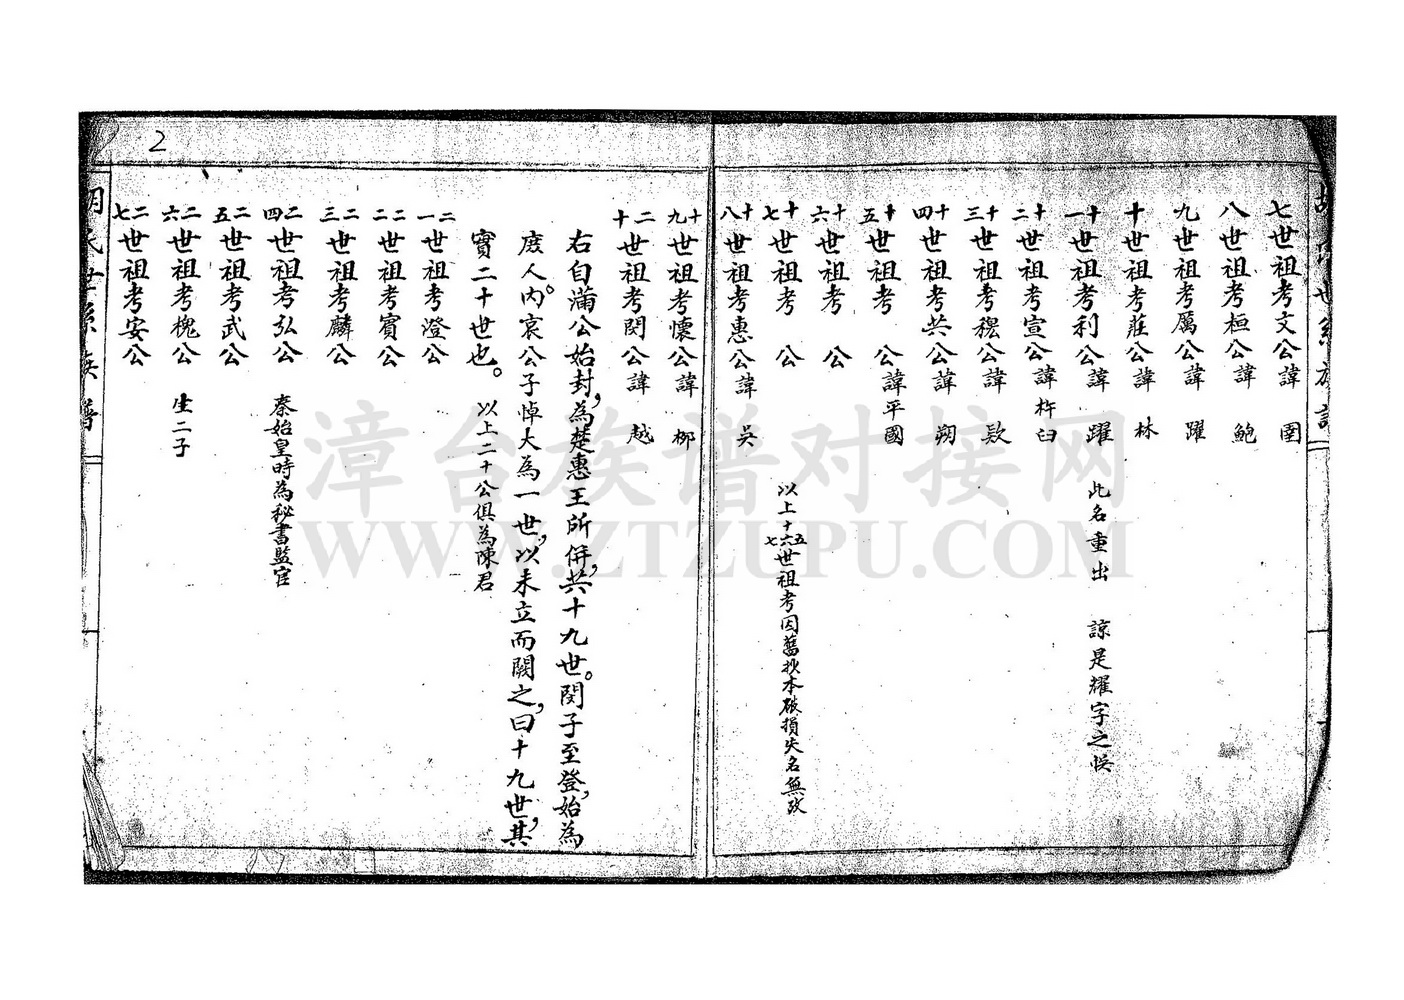 胡氏世系族譜
七世祖考文公諱 圉
八世祖考桓公諱 鮑
九世祖考厲公諱 躍
十世祖考莊公諱 林
十一世祖考利公諱 躍 此名重出 諒是耀字之悞
十二世祖考宣公諱杵臼
十三世祖考穆公諱 款
十四世祖考共公諱 朔
十五世祖考 公諱平國
十六世祖考 公
十七世祖考 公 以上十五六七世祖考因舊抄本破損失名無攷
十八世祖考惠公諱 吳
十九世祖考懷公諱 柳
二十世祖考閔公諱 越
右自滿公始封，為楚惠王所併，共十九世。閔子至登，始為
庶人。內哀公子悼大為一世，以未立而闕之，曰十九世，其
實二十世也。 以上二十公俱為陳君
二一世祖考澄公
二二世祖考賓公
二三世祖考麟公
二四世祖考弘公 秦始皇時為秘書監官
二五世祖考武公
二六世祖考槐公 生二子
二七世祖考安公
胡氏世系族譜
2
漳台族谱对接网
WWW.ZTZUPU.COM